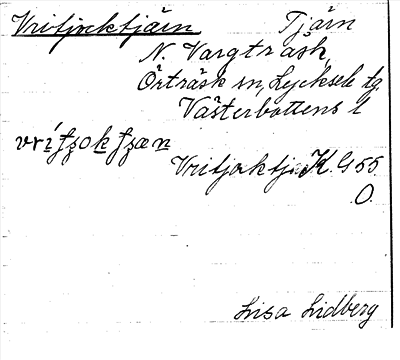 Vritjocktjärn Tjärn
N. Vargträsk,
Örträsk sn, Lycksele tg.
Västerbottens l
Vritjoktj K. G 55.
O.
Lisa Lidberg